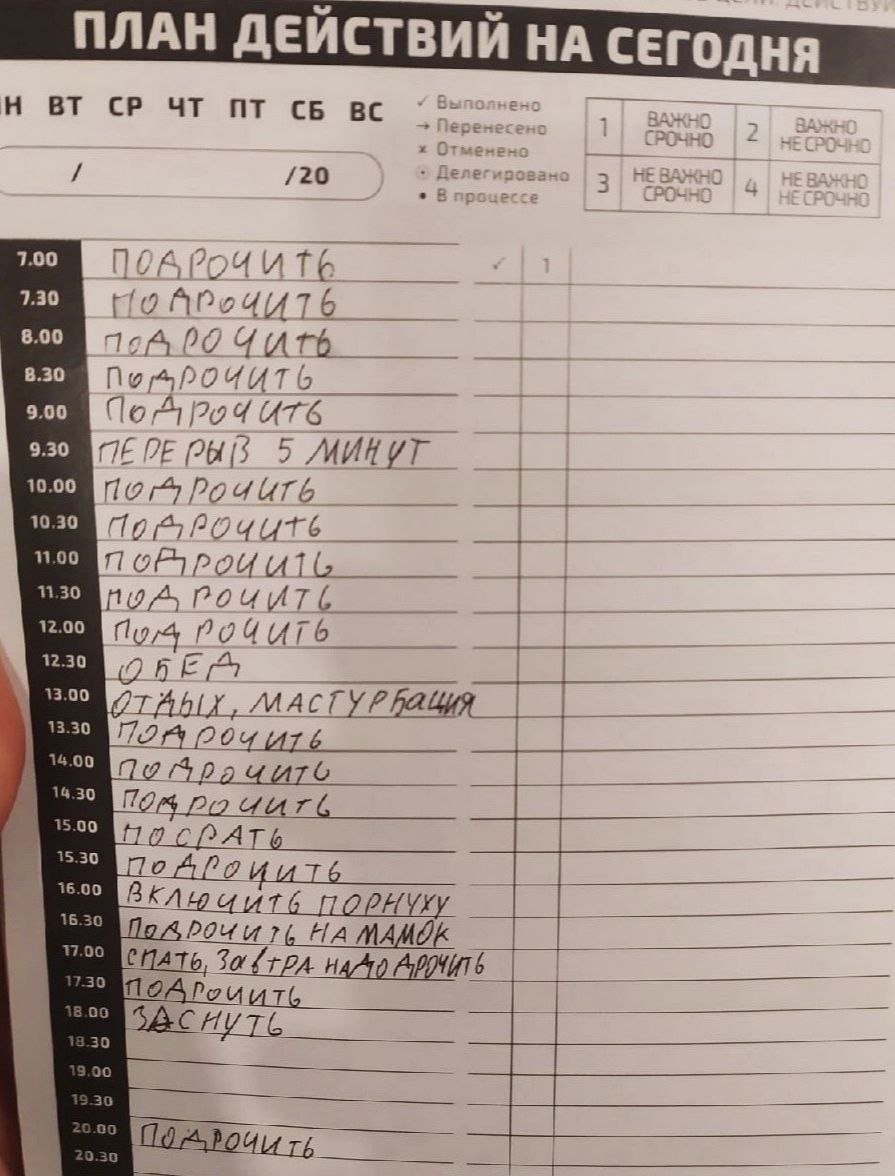 ДЕЙСТВУЙ
ПЛАН ДЕЙСТВИЙ НА СЕГОДНЯ
ПН ВТ СР ЧТ ПТ СБ ВС
/ /20
✓ Выполнено
→ Перенесено
× Отменено
⊙ Делегировано
• В процессе
1 ВАЖНО СРОЧНО 2 ВАЖНО НЕ СРОЧНО
3 НЕ ВАЖНО СРОЧНО 4 НЕ ВАЖНО НЕ СРОЧНО
7.00 ПОДРОЧИТЬ ✓ 1
7.30 ПОДРОЧИТЬ
8.00 ПОДРОЧИТЬ
8.30 ПОДРОЧИТЬ
9.00 ПОДРОЧИТЬ
9.30 ПЕРЕРЫВ 5 МИНУТ
10.00 ПОДРОЧИТЬ
10.30 ПОДРОЧИТЬ
11.00 ПОДРОЧИТЬ
11.30 ПОДРОЧИТЬ
12.00 ПОДРОЧИТЬ
12.30 ОБЕД
13.00 ОТДЫХ, МАСТУРБАЦИЯ
13.30 ПОДРОЧИТЬ
14.00 ПОДРОЧИТЬ
14.30 ПОДРОЧИТЬ
15.00 ПОСРАТЬ
15.30 ПОДРОЧИТЬ
16.00 ВКЛЮЧИТЬ ПОРНУХУ
16.30 ПОДРОЧИТЬ НА МАМОК
17.00 СПАТЬ, ЗАВТРА НАДО ДРОЧИТЬ
17.30 ПОДРОЧИТЬ
18.00 ЗАСНУТЬ
18.30
19.00
19.30
20.00 ПОДРОЧИТЬ
20.30